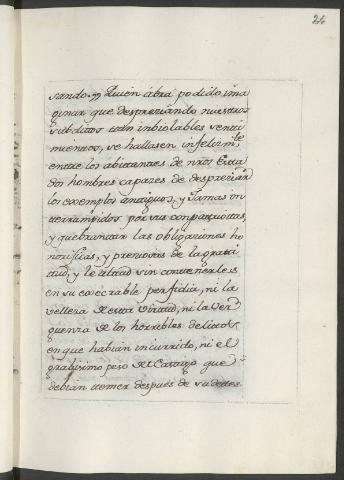 24
sando. Quien abrá podido ima
ginar que despreziando nuestros
subditos tan inbiolables senti
mientos, se hallasen infelizm.te
entre los abitantes de nros Esta
dos hombres capazes de despreziar
los exemplos antiguos, y Jamas in
terrumpidos por sus compatriotas,
y quebrantar las obligaziones ho
norificas, y preziosas de la grati
tud, y lealtad sin contenerles
en su execrable perfidia, ni la
velleza de esta Virtud, ni la Ver
guenza de los horribles delitos
en que habian incurrido, ni el
grabisimo peso del Castigo que
debian temer despues de su